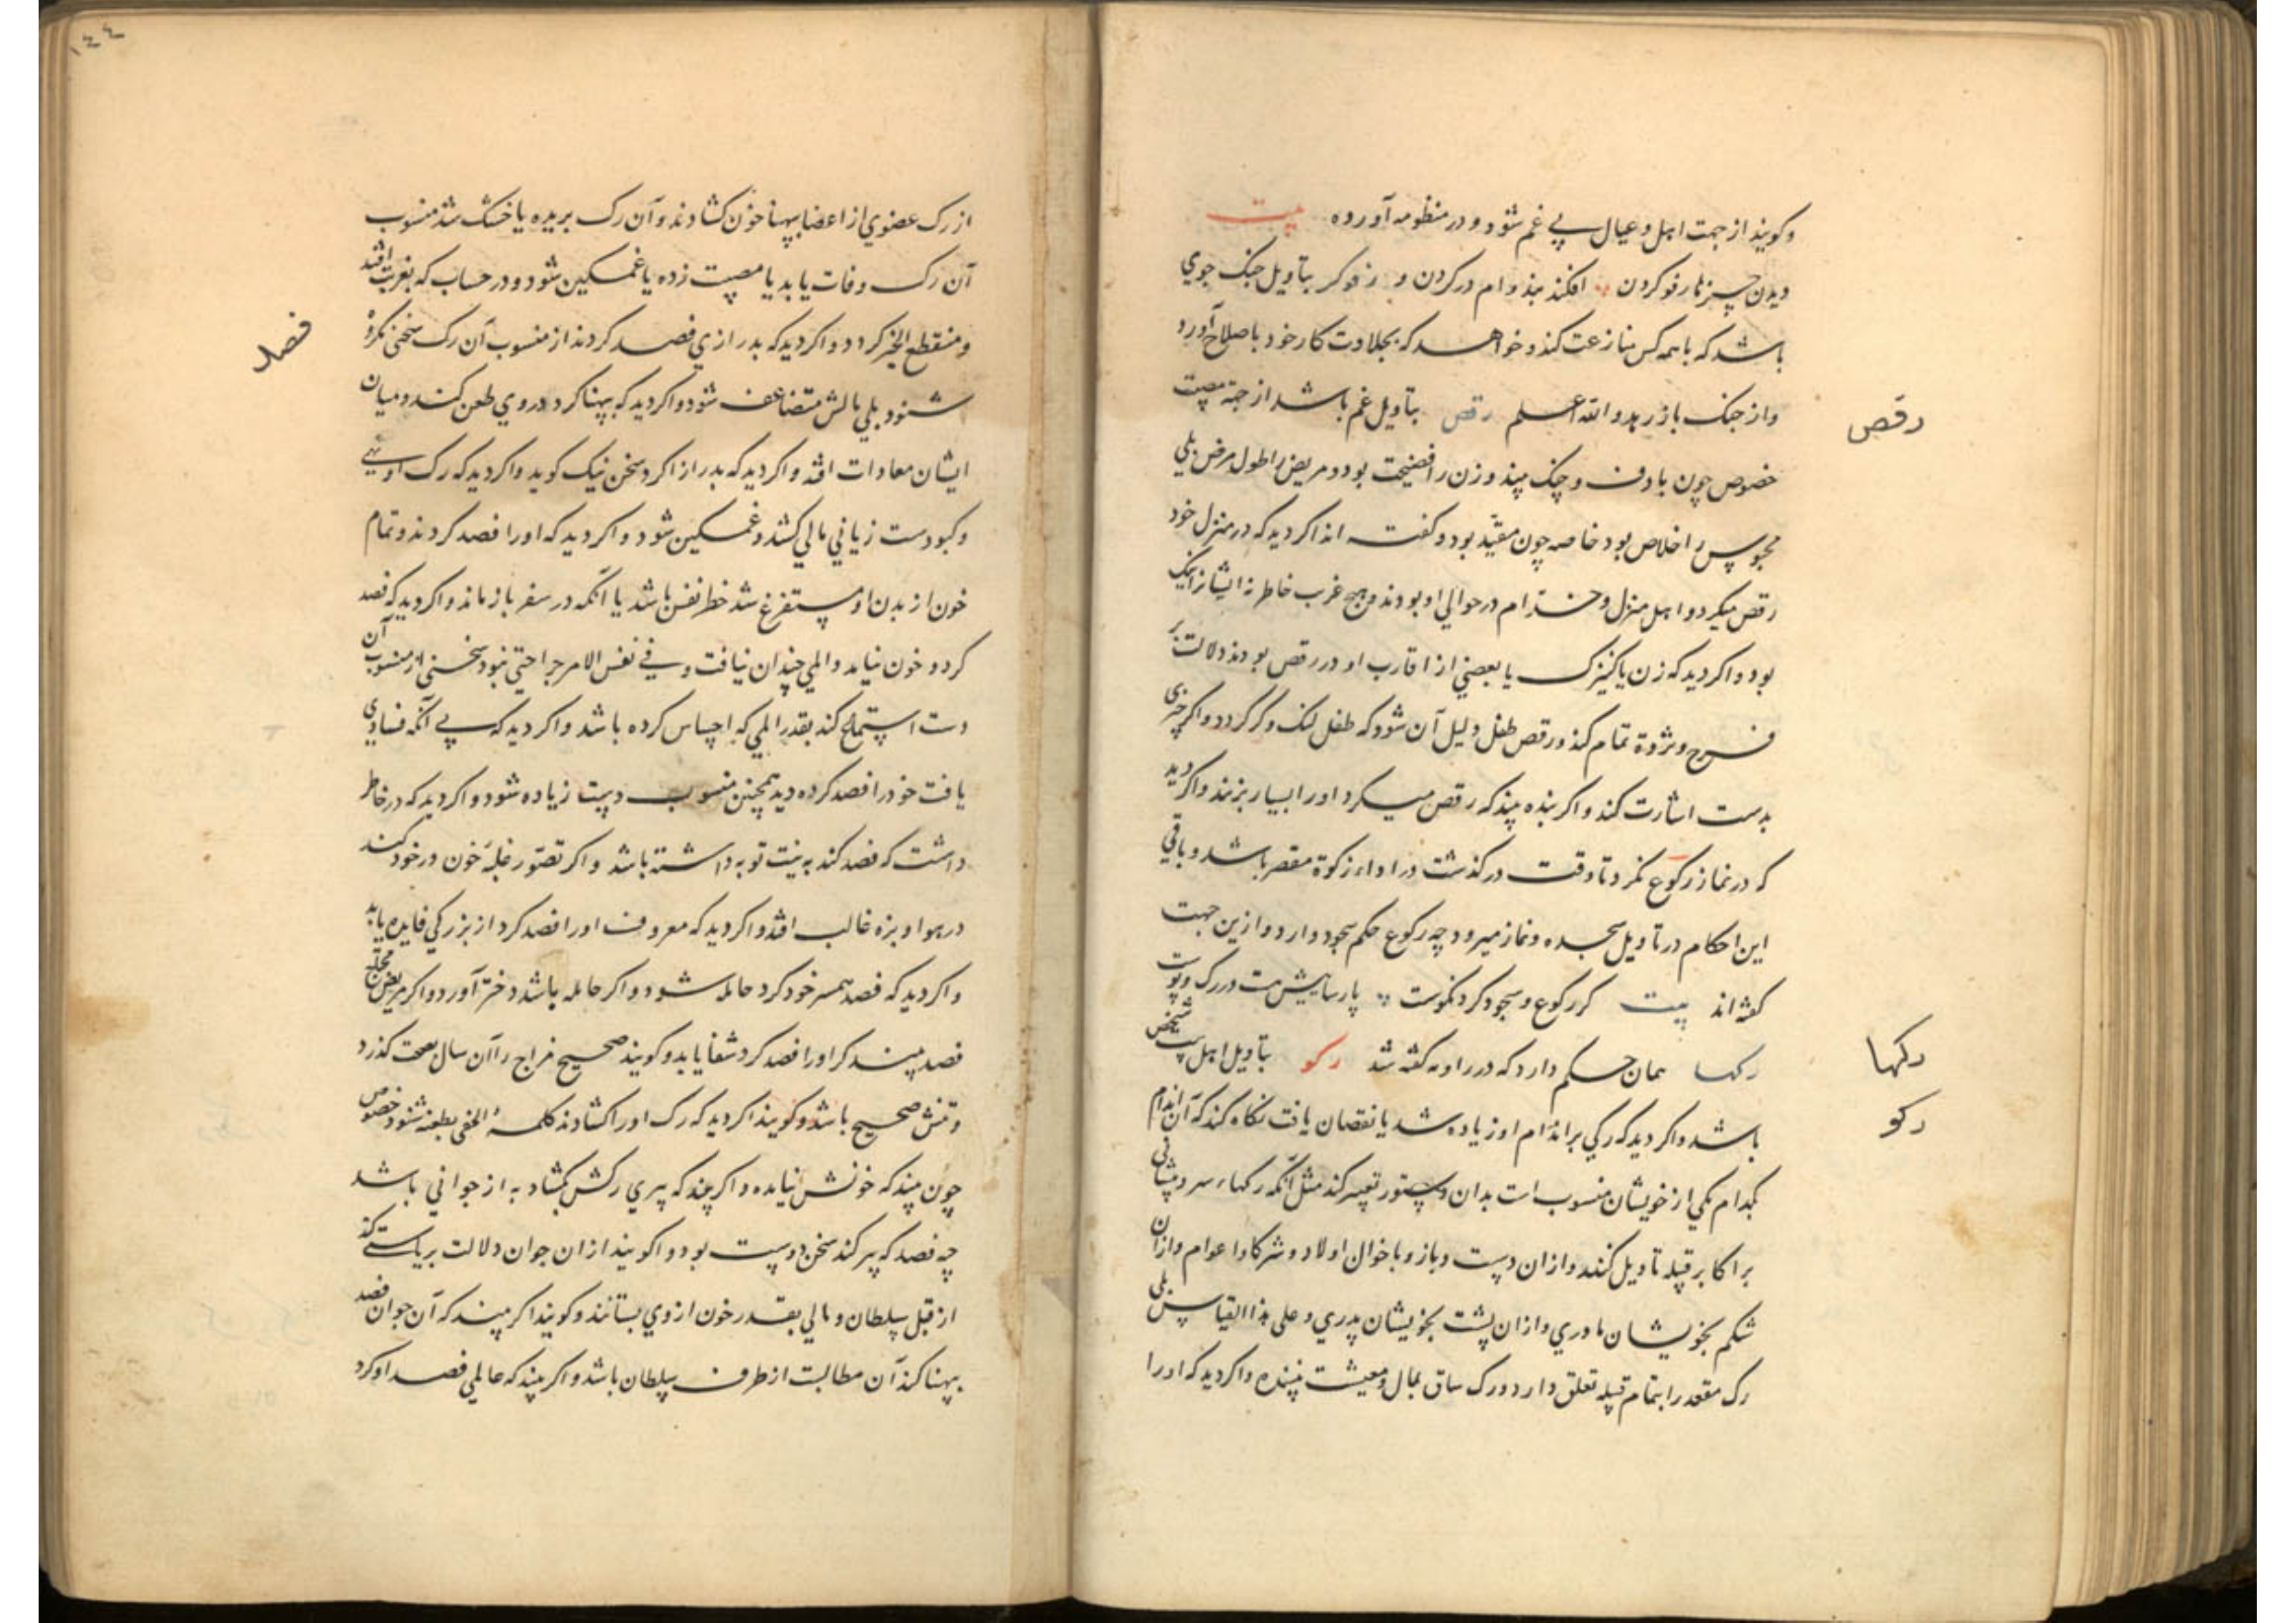 وکویند از جهت اهل و عیال بی غم شود و در منظومه آورده بیت
دیدن چیزها رفو کردن افکند بند وام در کردن و رفوکر بتاویل جنک جوی
باشد که با همه کس منازعت کند و خواهد که بجلادت کار خود باصلاح آورد
واز جنک باز رهد والله اعلم رقص بتاویل غم باشد از جهة مصیبت
رقص
خصوص چون با دف و چنک بیند و زن را فضیحت بود و مریض را طول مرض بلی
محبوس را خلاص بود خاصه چون مقید بود و کفته اند اکر دید که در منزل خود
رقص میکرد و اهل منزل و خدام در حوالی او بودند و هیچ غرب خاطر نه ایشانرا نیک
بود و اکر دید که زن یا کنیزک یا بعضی از اقارب او در رقص بودند دلالت بر
فرح و مژده تمام کند و رقص طفل دلیل آن شود که طفل لنک و کر کردد و اکر چیزی
بدست اشارت کند و اکر بنده بیند که رقص میکرد اورا بسیار بزنند و اکر دید
که در نماز رکوع نکرد تا وقت درکذشت در اداء زکوة مقصر باشد و باقی
این احکام در تاویل سجده و نماز میرود چه رکوع حکم سجود دارد و ازین جهت
کفته اند بیت کر رکوع و سجود کرد نکوست پارساییش هست در رک و پوست
رکها همان حکم دارد که در راوند کفته شد رکو بتاویل اهل بیت شخص
رکها
باشد و اکر دید که رکی بر اندام او زیاده شد یا نقصان یافت نکاه کند که آن اندام
رکو
بکدام یکی از خویشان منسوبست بدان دستور تعبیر کند مثل آنکه رکهاء سر و پیشانی
بر اکابر قبیله تاویل کنند و ازان دست و بازو باخوان اولاد و شرکا و اعوام و ازان
شکم بخویشان مادری و ازان پشت بخویشان پدری و علی هذا القیاس بلی
رک مقعد را بتمام قبیله تعلق دارد و رک ساق بمال و معیشت بیننده و اکر دید که اورا
١٤٤
از رک عضوی از اعضا بپهنا خون کشادند و آن رک بریده یا خشک شد منسوب
آن رک وفات یابد یا مصیبت زده یا غمکین شود و در حساب که بغربت افتد
و منقطع الخبر کردد و اکر دید که بدرازی فصد کردند از منسوب آن رک سخنی نکره
فصد
شنود بلی مالش متضاعف شود و اکر دید که بپهنا کرد در وی طعن کند و میان
ایشان معادات افتد و اکر دید که بدراز اکرد سخن نیک کوید و اکر دید که رک او تهی
و کبودست زیانی مالی کشد و غمکین شود و اکر دید که اورا فصد کردند و تمام
خون از بدن او مستفرغ شد خطر نفس باشد یا آنکه در سفر باز ماند و اکر دید که فصد
کرد و خون نیامد و المی چندان نیافت و فی نفس الامر جراحتی نبود سخنی از منسوب آن
دست استماع کند بقدر المی که احساس کرده باشد و اکر دید که بی آنکه فسادی
یافت خود را فصد کرده دید همچنین منسوب دیت زیاده شود و اکر دید که در خاطر
داشت که فصد کند به نیت توبه داشته باشد و اکر تصور غلبه خون در خود کند
در هوا و بزه غالب افتد و اکر دید که معروف اورا فصد کرد از بزرکی فایده یابد
و اکر دید که فصد همسر خود کرد حامله شود و اکر حامله باشد دختر آورد و اکر مریض محتاج
فصد بیند کر اورا فصد کرد شفا یابد و کویند صحیح مزاج را آن سال بصحت کذرد
و تنش صحیح باشد و کویند اکر دید که رک اورا کشادند کلمة الحق بطعنه شنود خصوص
چون بیند که خونش نیامده و اکر بیند که پیری رکش بکشاد به از جوانی باشد
چه فصد که پیر کند سخن دوست بود و اکویند از ان جوان دلالت بریاستی کند
از قبل سلطان و مالی بقدر خون ازوی بستانند و کویند اکر بیند که آن جوان فصد
بپهنا کند آن مطالبت از طرف سلطان باشد و اکر بیند که عاملی فصد او کرد